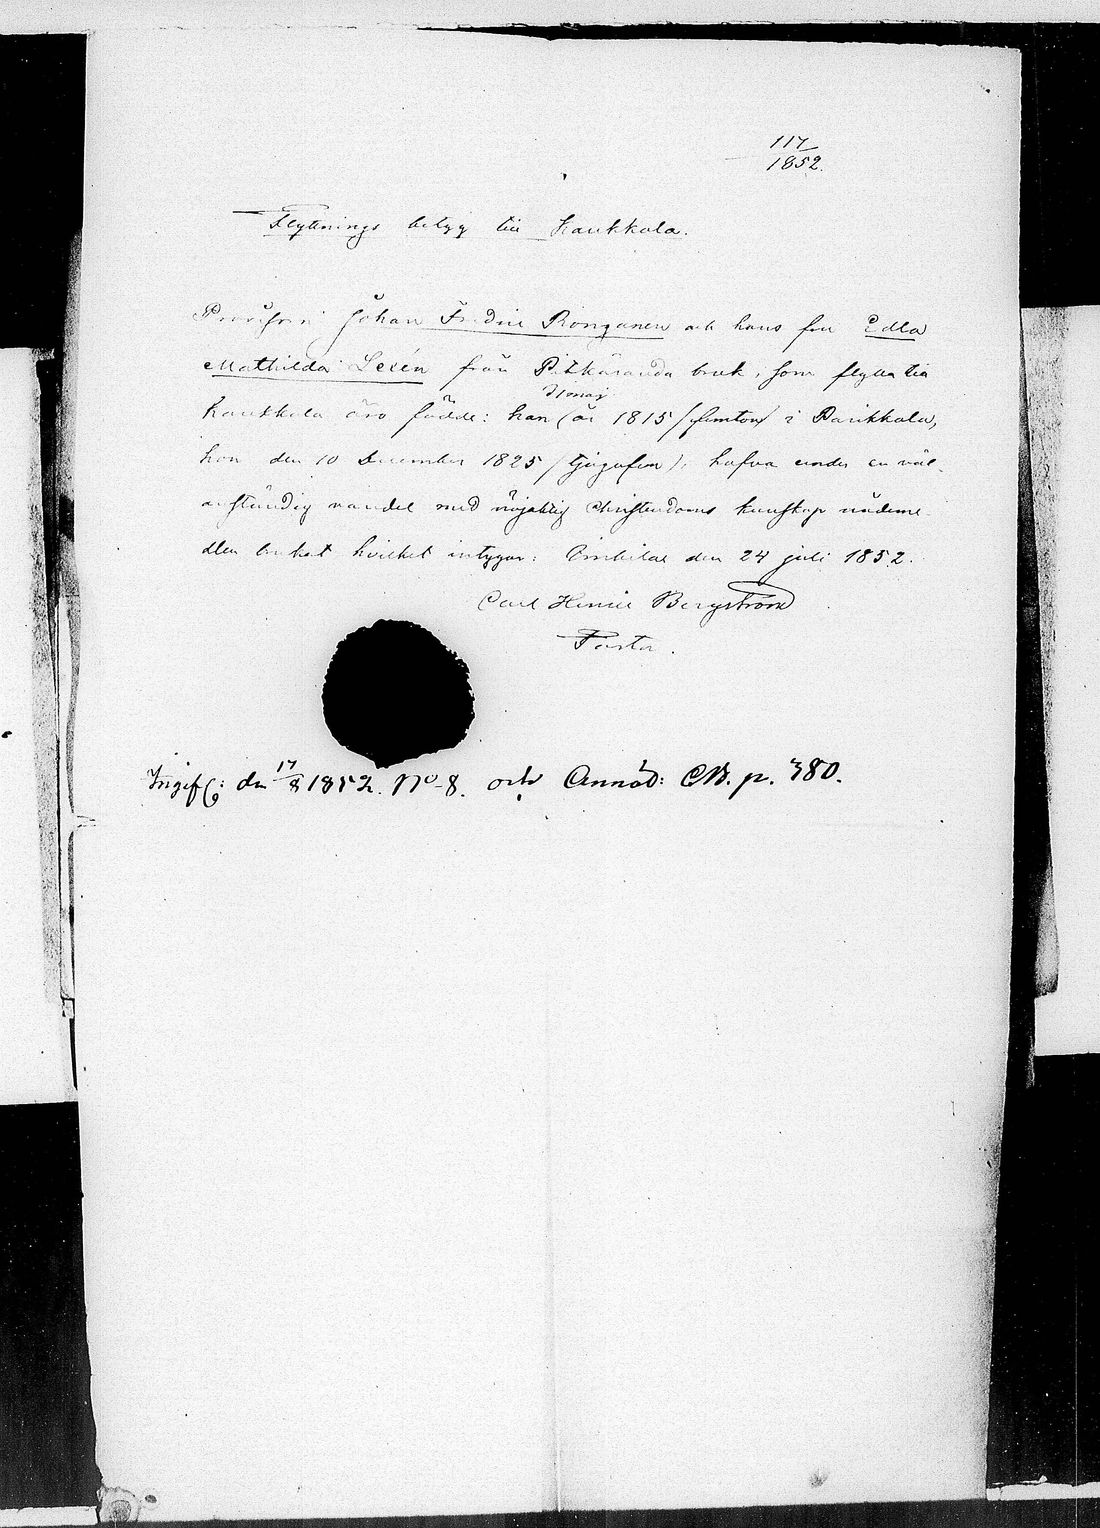 117
1852.
Flyttnings betyg till Kaukkola.
Johan Fredric Ronganen och hans fru Edla
Mathilda Lexén från Pitkäranda bruk, som flytta till
31 maj
Kaukkola äro födde: han (år 1815 /femton/ i Parikkala,
hon den 10 December 1825 /tjugufem), hafva under en väl-
anständig vandel med nöjaktig Christendoms kunskap nådeme-
dlen brukat hvilket intygar: Imbilax den 24 juli 1852.
Carl Henric Bergström
Pastor.
Ingifv: den 17/8 1852. No 8. och Annot: CB. p. 380.